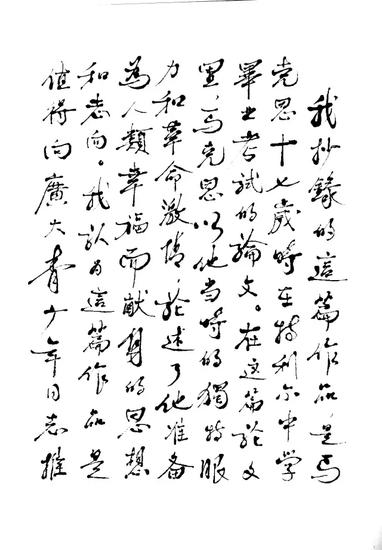 我抄錄的這篇作品,是馬
克思十七歲時在特利尔中学
畢业考試的論文。在这篇論文
里,馬克思以他当時的獨特眼
力和革命激情,論述了他准备
為人類幸福而献身的思想
和志向。我认为這篇作品是
值得向廣大青少年同志推